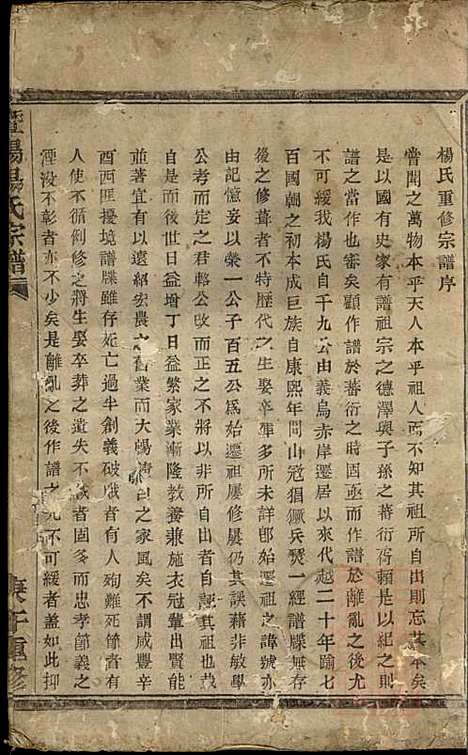 楊氏重修宗譜序
嘗聞之萬物本乎天人本乎祖人而不知其祖所自出則忘其本矣
是以國有史家有譜祖宗之德澤與子孫之蕃衍胥賴是以紀之則
譜之當作也審矣顧作譜於蕃衍之時固亟而作譜於離亂之後尤
不可緩我楊氏自千九公由義烏赤岸遷居以來代越二十年踰七
百國朝之初本成巨族自康熙年間山冦猖獗兵燹一經譜牒無存
後之重修者不特歷代之生娶卒葬多未詳即始遷祖之諱號亦
由記憶妄以榮一公子百五公爲始遷祖屢修屢仍其誤藉非敏學
公考而定之君輅公改而正之不將以非所自出者自誣其祖哉今
自是以來世日益增丁日益繁家業漸隆教養兼施衣冠輩出賢能
並著宜有以遠紹宏農之舊業而大暢清白之家風矣不謂咸豐辛
酉西匪擾境譜牒雖存妃亡過半創義破賊者有人殉難死節者有
人使不循例修之將生娶卒葬之遺失不識者固多而忠孝節義之
湮没不彰者亦不少矣是離亂之後作譜之尤不可緩者蓋如此抑
暨陽楊氏宗譜
庚午重修